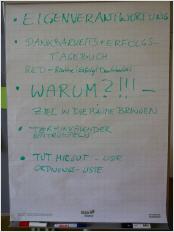 • EIGENVERANTWORTUNG
• DANKBARKEITS + ERFOLGS-
TAGEBUCH
• WARUM?!!!
ZIEL IN DIE RÄUME BRINGEN
• TERMINKALENDER
• TUT MIR GUT - LISTE
ORDNUNGS - LISTE